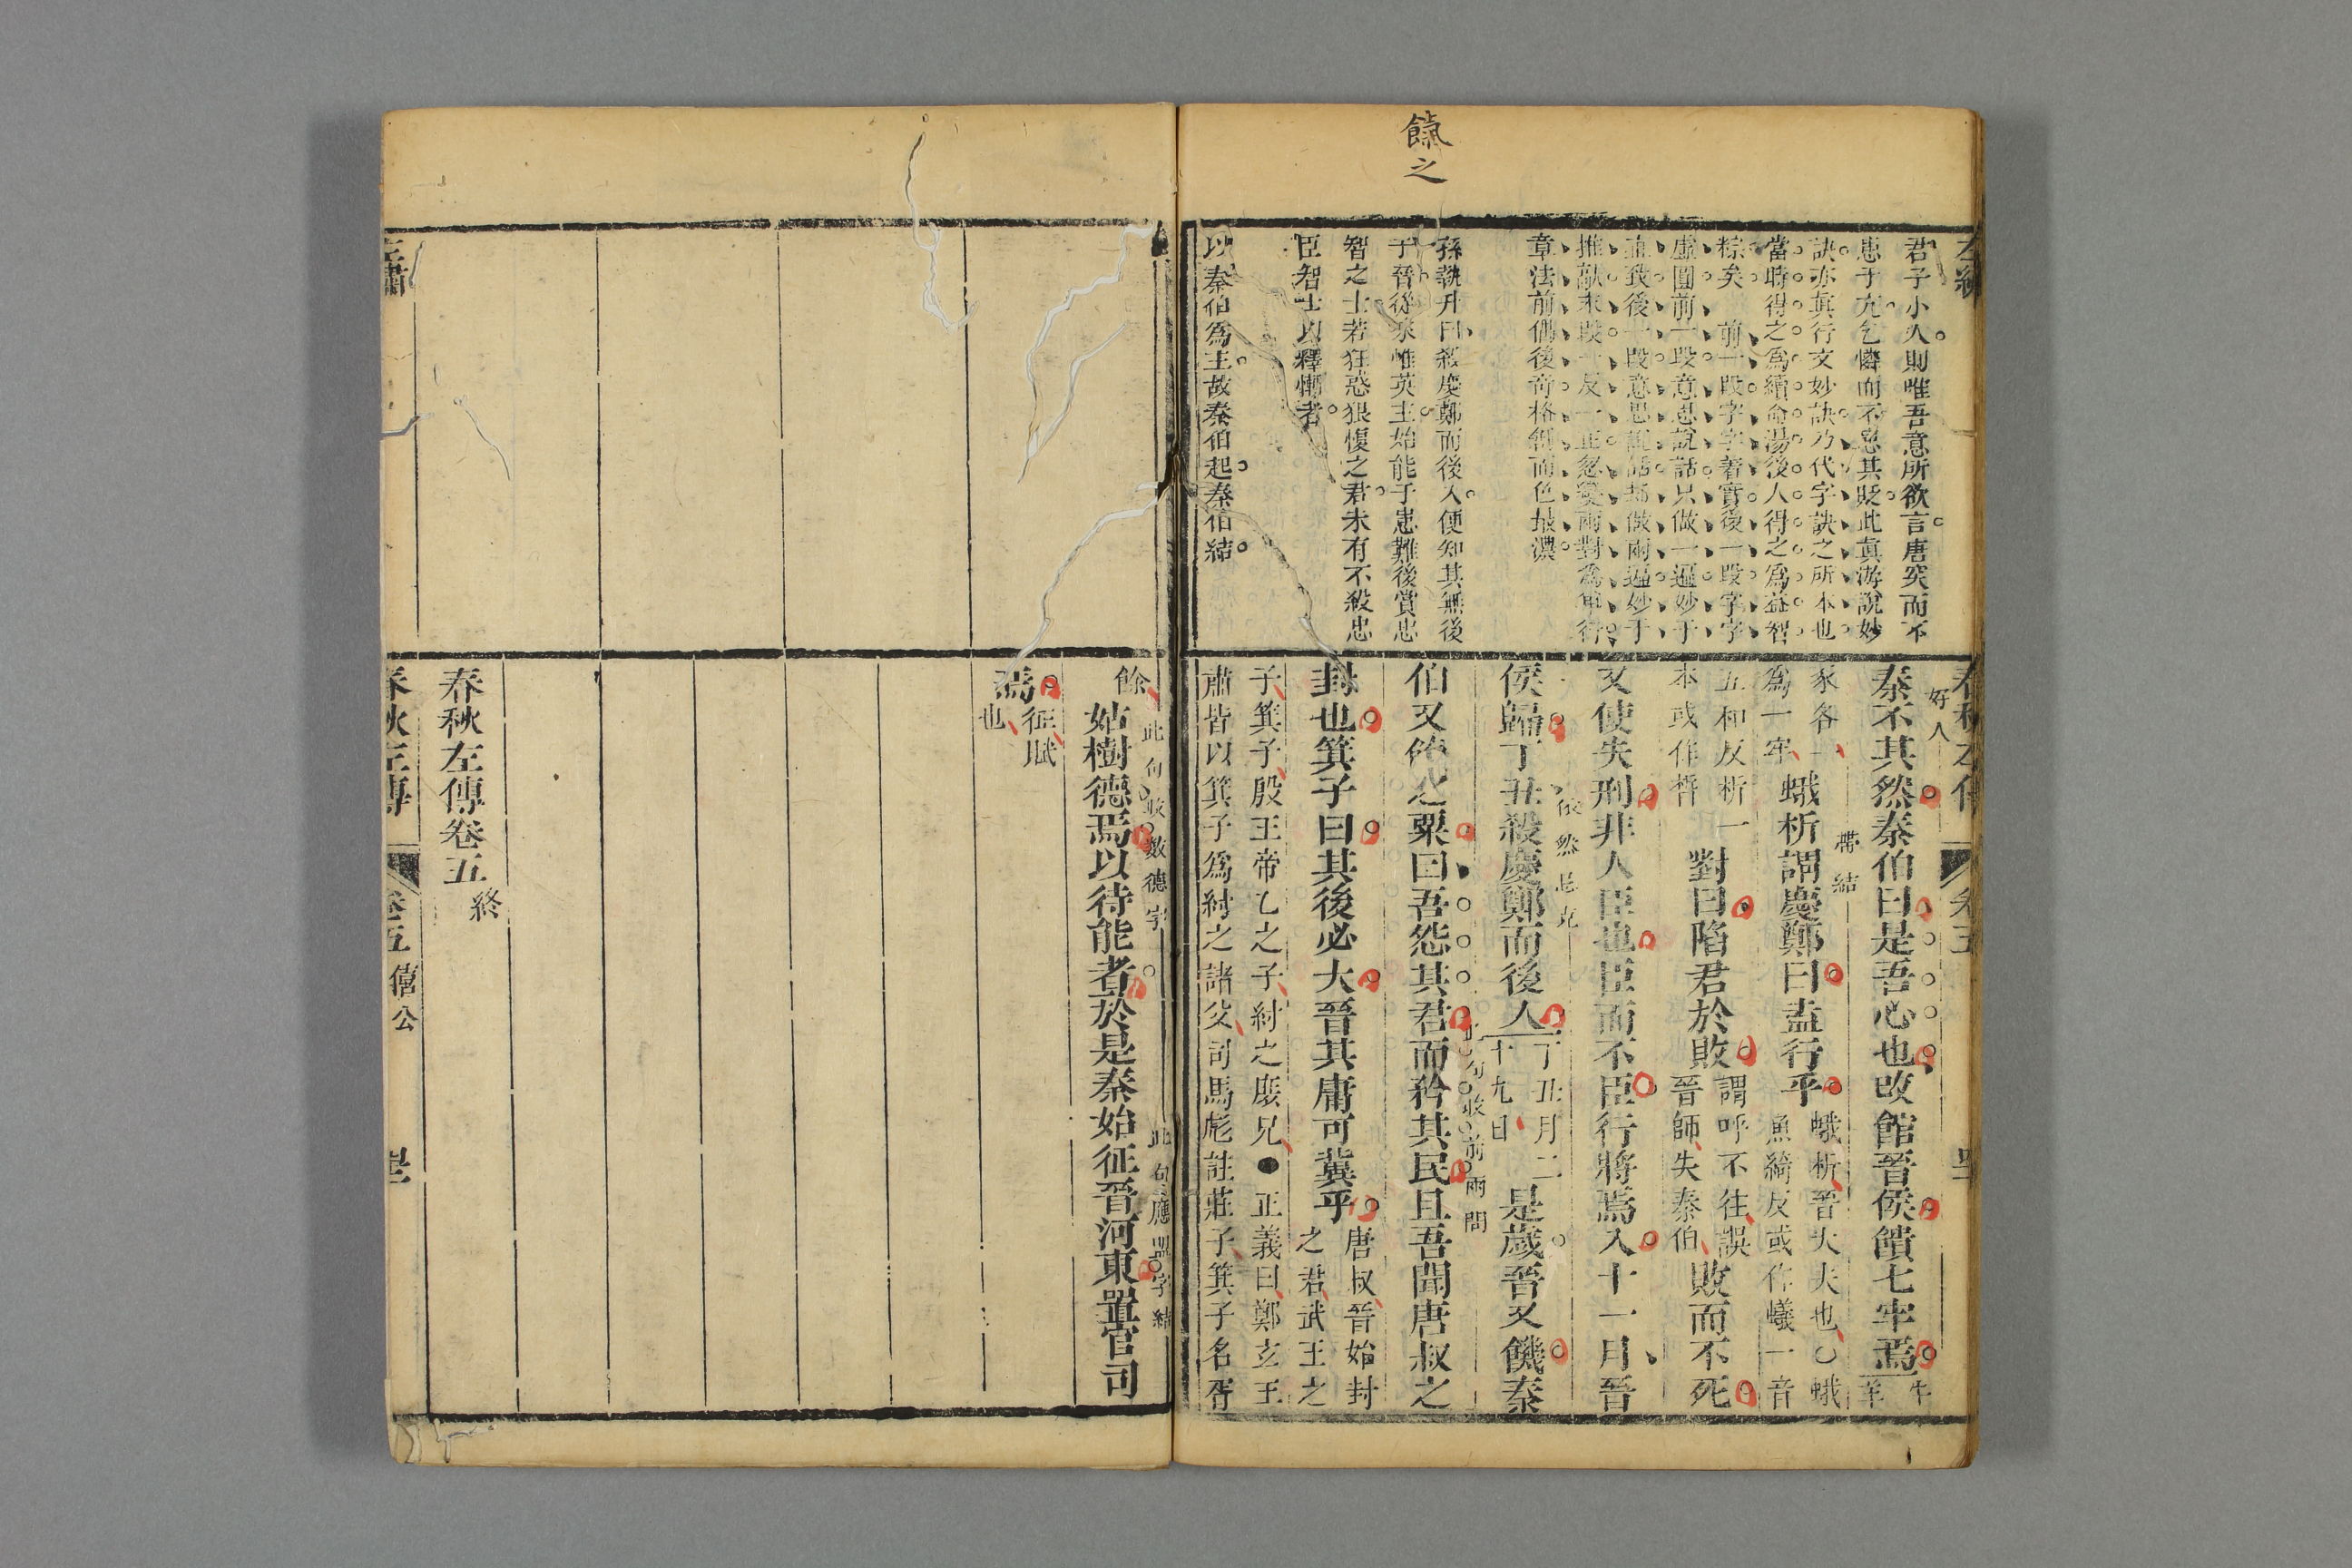 餼之
君子小人則唯吾意所欲言唐突而不
患于亢乞憐而不患其貶此真游說妙
訣亦真行文妙訣乃代字訣之所本也
當時得之為續命湯後人得之為益智
粽矣 前一段字字著實後一段字字
虛圓前一段意思說話只做一遍妙于
推敲末段一反一正忽變兩對為單行
章法前偶後奇格創而色最濃
孫執升曰殺慶鄭而後入便知其無後
于晉從來惟英主始能于患難後賞忠
智之士若狂惑狠愎之君未有不殺忠
臣智士以釋慚者
以秦伯為主故秦伯起秦伯結
春秋左傳
好人
秦不其然秦伯曰是吾心也改館晉侯饋七牢焉牛羊
豕各一為一牢蛾析謂慶鄭曰盍行乎蛾析晉大夫也〇蛾魚綺反或作蟻一音
帶結
五和反析一本或作皙對曰陷君於敗謂呼不往誤晉師失秦伯敗而不死
又使失刑非人臣也臣而不臣行將焉入十一月晉
侯歸丁丑殺慶鄭而後入丁丑月二十九日是歲晉又饑秦
伯又餼之粟曰吾怨其君而矜其民且吾聞唐叔之
此句收前兩問
封也箕子曰其後必大晉其庸可冀乎唐叔晉始封之君武王之
子箕子殷王帝乙之子紂之庶兄●正義曰鄭玄王
肅皆以箕子為紂之諸父司馬彪註莊子箕子名胥
餘姑樹德焉以待能者於是秦始征晉河東置官司
此句收數德字
此句應盟字結
焉征賦也
春秋左傳卷五終
春秋左傳
卷五 僖公